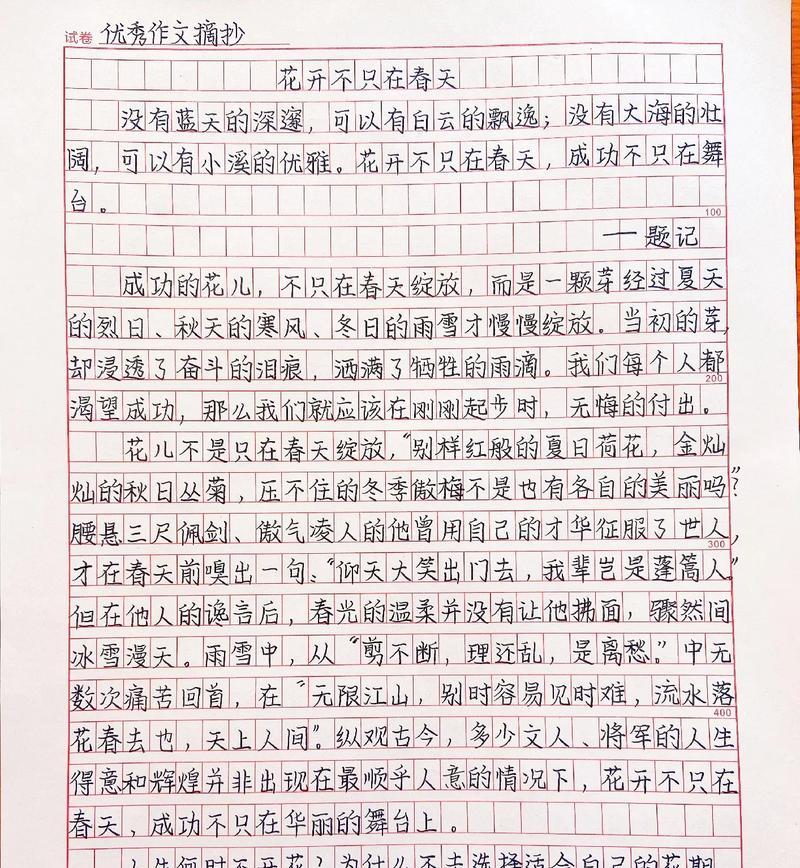 试卷 优秀作文摘抄
花开不只在春天
没有蓝天的深邃，可以有白云的飘逸；没有大海的壮
阔，可以有小溪的优雅。花开不只在春天，成功不只在舞
台。
100
——题记
成功的花儿，不只在春天绽放，而是一颗芽经过夏天
的烈日、秋天的寒风、冬日的雨雪才慢慢绽放。当初的芽，
却浸透了奋斗的泪痕，洒满了牺牲的雨滴。我们每个人都
200
渴望成功，那么我们就应该在刚刚起步时，无悔的付出。
花儿不是只在春天绽放，“别样红般的夏日荷花，金灿
灿的秋日丛菊，压不住的冬季傲梅不是也有各自的美丽吗”？
腰悬三尺佩剑、傲气凌人的他曾用自己的才华征服了世人，
300
才在春天前嗅出一句：“仰天大笑出门去，我辈岂是蓬蒿人”
但在他人的谗言后，春光的温柔并没有让他拂面，骤然间
冰雪漫天。雨雪中，从“剪不断，理还乱，是离愁。”中无
数次痛苦回首，在“无限江山，别时容易见时难，流水落
400
花春去也，天上人间”。纵观古今，多少文人、将军的人生
得意和辉煌并非出现在最顺乎人意的情况下，花开不只在
春天，成功不只在华丽的舞台上。
人生何时不开花？为什么不去选择适合自己的花期